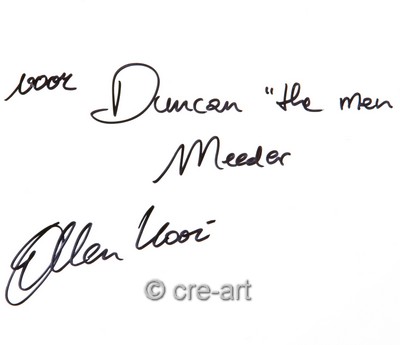 voor Duncan "the men
Meeder
Ellen Kooi
© cre-art